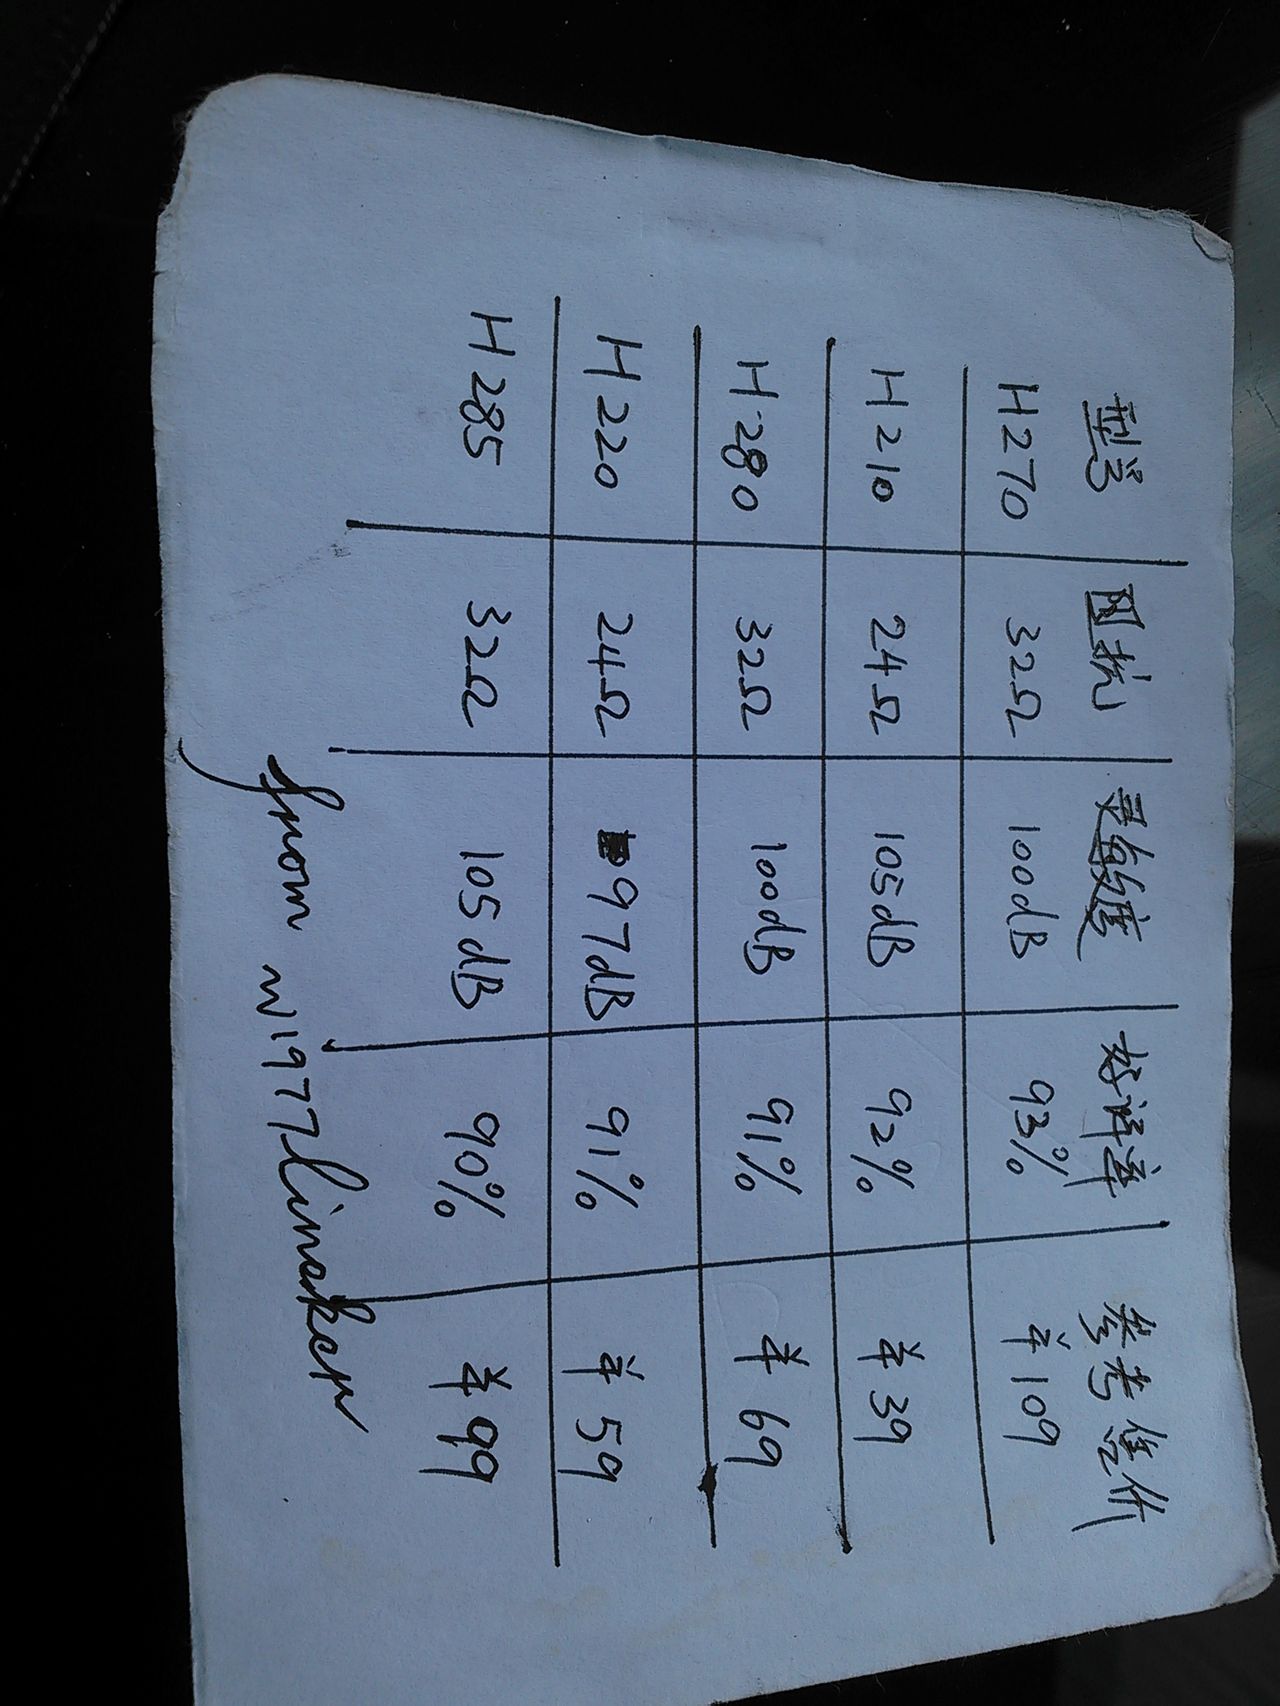 型号 阻抗 灵敏度 好评率 参考售价
H270 32Ω 100dB 93% ¥109
H210 24Ω 105dB 92% ¥39
H280 32Ω 100dB 91% ¥69
H220 24Ω 97dB 91% ¥59
H285 32Ω 105dB 90% ¥99
from w1977limaker